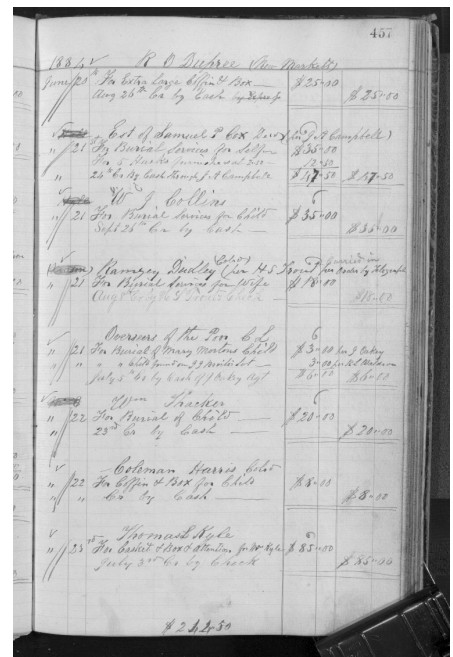 457
1884 R O Duhree (New Market)
June 20th For Extra Large Coffin & Box — $25-00
Aug 26th Cr by Cash $25-00
Est of Samuel P Cox Decd (for J A Campbell)
" 21st For Burial Services for Self — $35-00
For 5 Hacks furnished at 2 50 — 12-50
24th Cr by Cash through J. A Campbell $47-50 $47-50
W J Collins
" 21 For Burial Services for Child $35-00
Sept 26th Cr by Cash — $35-00
Ramsey Dudley Cold (for H S Trout) per order by Telegraph
" 21 For Burial Services for Wife $18-00
Aug Cr by H S Trouts Check $18-00
Overseers of the Poor C. L.
" 21 For Burial of Mary Martins Child $3-00
" " Child found on 3-00
July Cr by Cash of Agt $6-00 $6-00
Thacker
" 22 For Burial of Child — $20-00
23rd Cr by Cash — $20-00
Coleman Harris Cold
" 22 For Coffin & Box for Child $8-00
" " Cr by Cash — $8-00
Thomas L Kyle
" 23rd For Casket & Box & attention for Mr Kyle $85-00
July 3rd Cr by Check $85-00